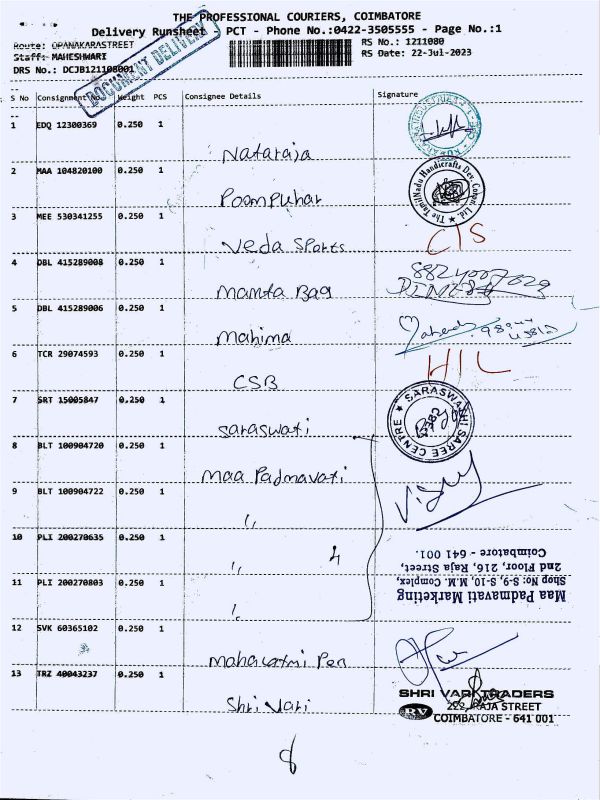 THE PROFESSIONAL COURIERS, COIMBATORE
Delivery Runsheet PCT - Phone No.:0422-3505555 - Page No.:1
Route: OPANAKARASTREET
RS No.: 1211080
Staff: MAHESHWARI
RS Date: 22-Jul-2023
DRS No.: DCJB121108001
DOCUMENT DELIVERY
S No Consignment No. Weight PCS Consignee Details Signature
1 EDQ 12300369 0.250 1
Nataraja
2 MAA 104820100 0.250 1
Poompuhar
The TamilNadu Handicrafts Dev. Corpn. Ltd.
3 MEE 530341255 0.250 1
Veda Sports
C/S
4 DBL 415289008 0.250 1
Mamta Bag
5 DBL 415289006 0.250 1
Mahima
6 TCR 29074593 0.250 1
CSB
HIL
7 SRT 15005847 0.250 1
Saraswati
SARASWATHI SAREE CENTRE
8 BLT 100904720 0.250 1
Maa Padmavati
9 BLT 100904722 0.250 1
"
10 PLI 200270635 0.250 1
" 4
11 PLI 200270803 0.250 1
"
Maa Padmavati Marketing
Shop No: S-9, S-10, M.M. Complex,
2nd Floor, 216, Raja Street,
Coimbatore - 641 001.
12 SVK 60365102 0.250 1
13 TRZ 40043237 0.250 1
Shri Vari
SHRI VARI TRADERS
RV 222, RAJA STREET
COIMBATORE - 641 001
8